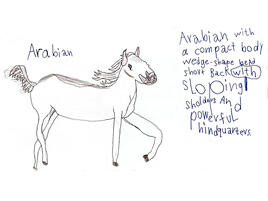 Arabian
Arabian with
a compact body
wedge-shape head
short Back with
sloping
sholders And
powerful
hindquarters.